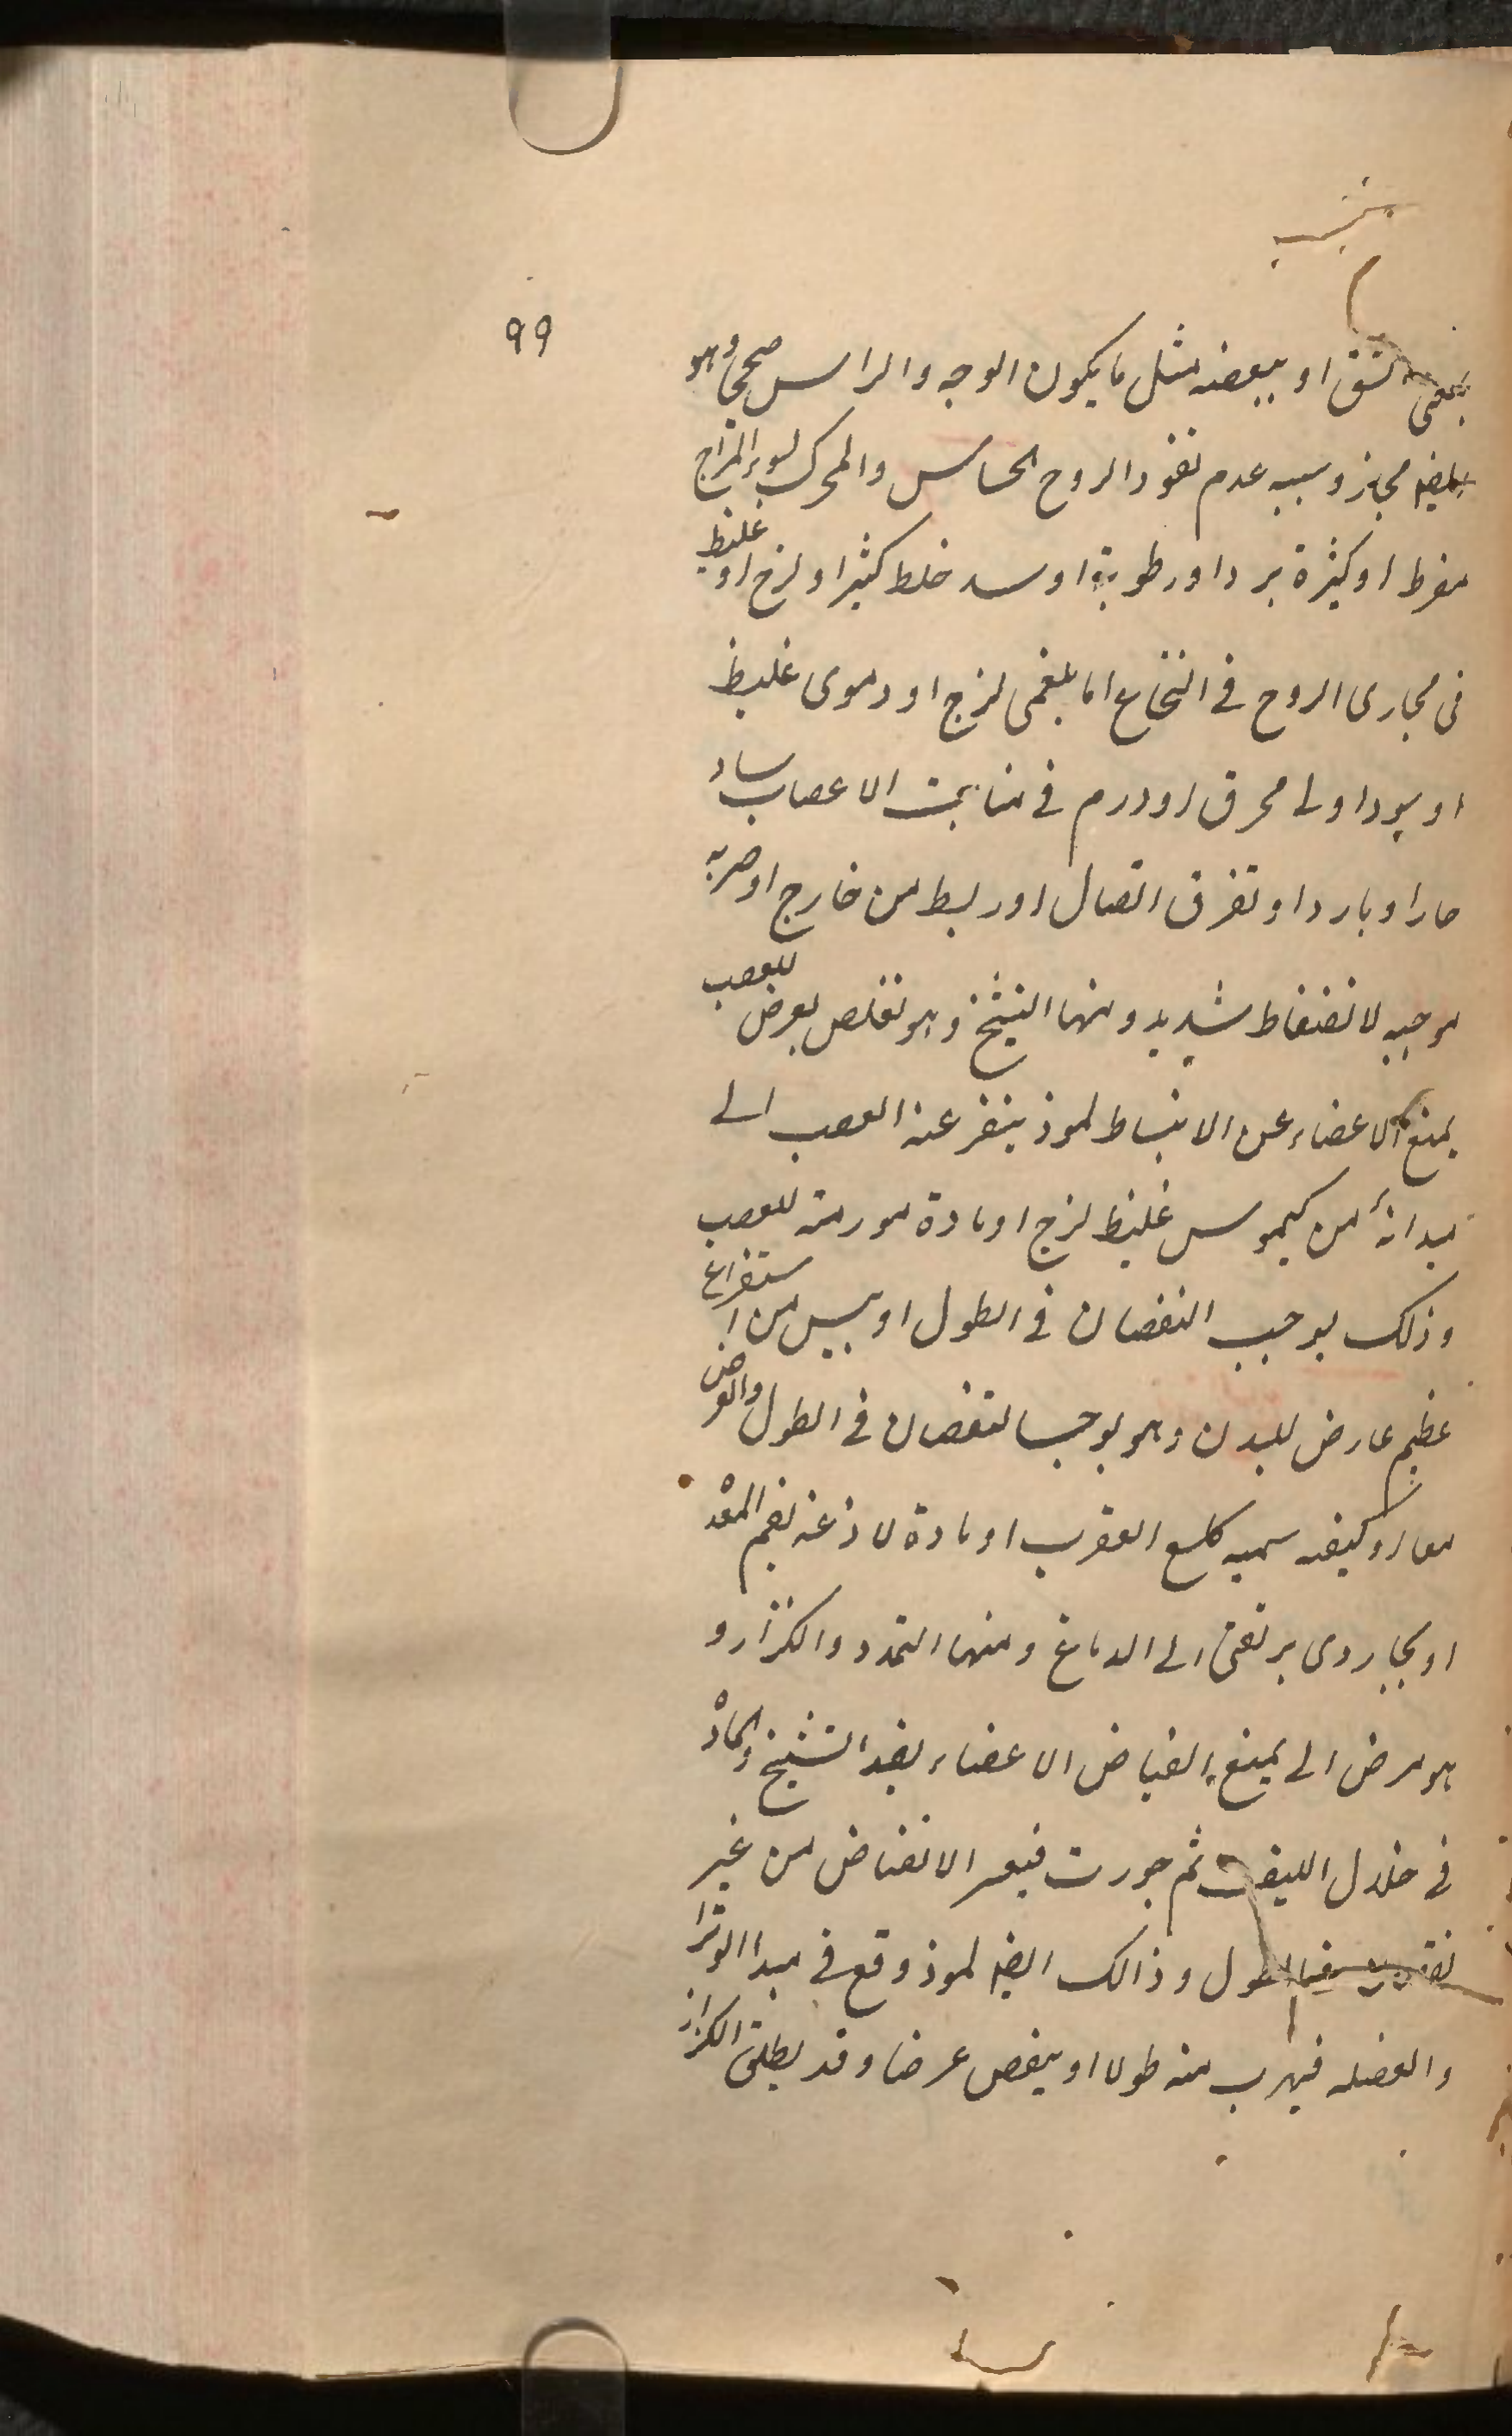 99
الشق او ببعضه مثل ما يكون الوجه والراس صحيح وهو
ايضا مجاز وسببه عدم نفوذ الروح الحساس والمحرك لسوء المزاج
مفرط او كثرة برد او رطوبة او سد خلط كثير او لزج او غليظ
فى مجارى الروح فى النخاع اما بلغمى لزج او دموى غليظ
او سوداوى محرق او ورم فى منابت الاعصاب ساد
حار او بارد او تفرق اتصال او ربط من خارج او ضربه
موجبه لانضغاط شديد ومنها التشنج وهو تقلص يعرض للعصب
يمنع الاعضاء عن الانبساط لموذ ينفر عنه العصب الى
مبدائه من كيموس غليظ لزج او مادة مورمة للعصب
وذلك يوجب النقصان فى الطول او يبس من استفراغ
عظيم عارض للبدن وهو يوجب النقصان فى الطول والعرض
معا او كيفيه سميه كلسع العقرب او مادة لاذعة لفم المعده
او بخار ردى يرتقى الى الدماغ ومنها التمدد والكزاز و
هو مرض الى يمنع انقباض الاعضاء بضد التشنج والماده
فى خلال الليف ثم جمدت فيعسر الانقباض من غير
نقص الطول وذالك ايضا لموذ وقع فى مبدا الوتر
والعضله فيهرب منه طولا او ينقص عرضا وقد يطلق الكزاز